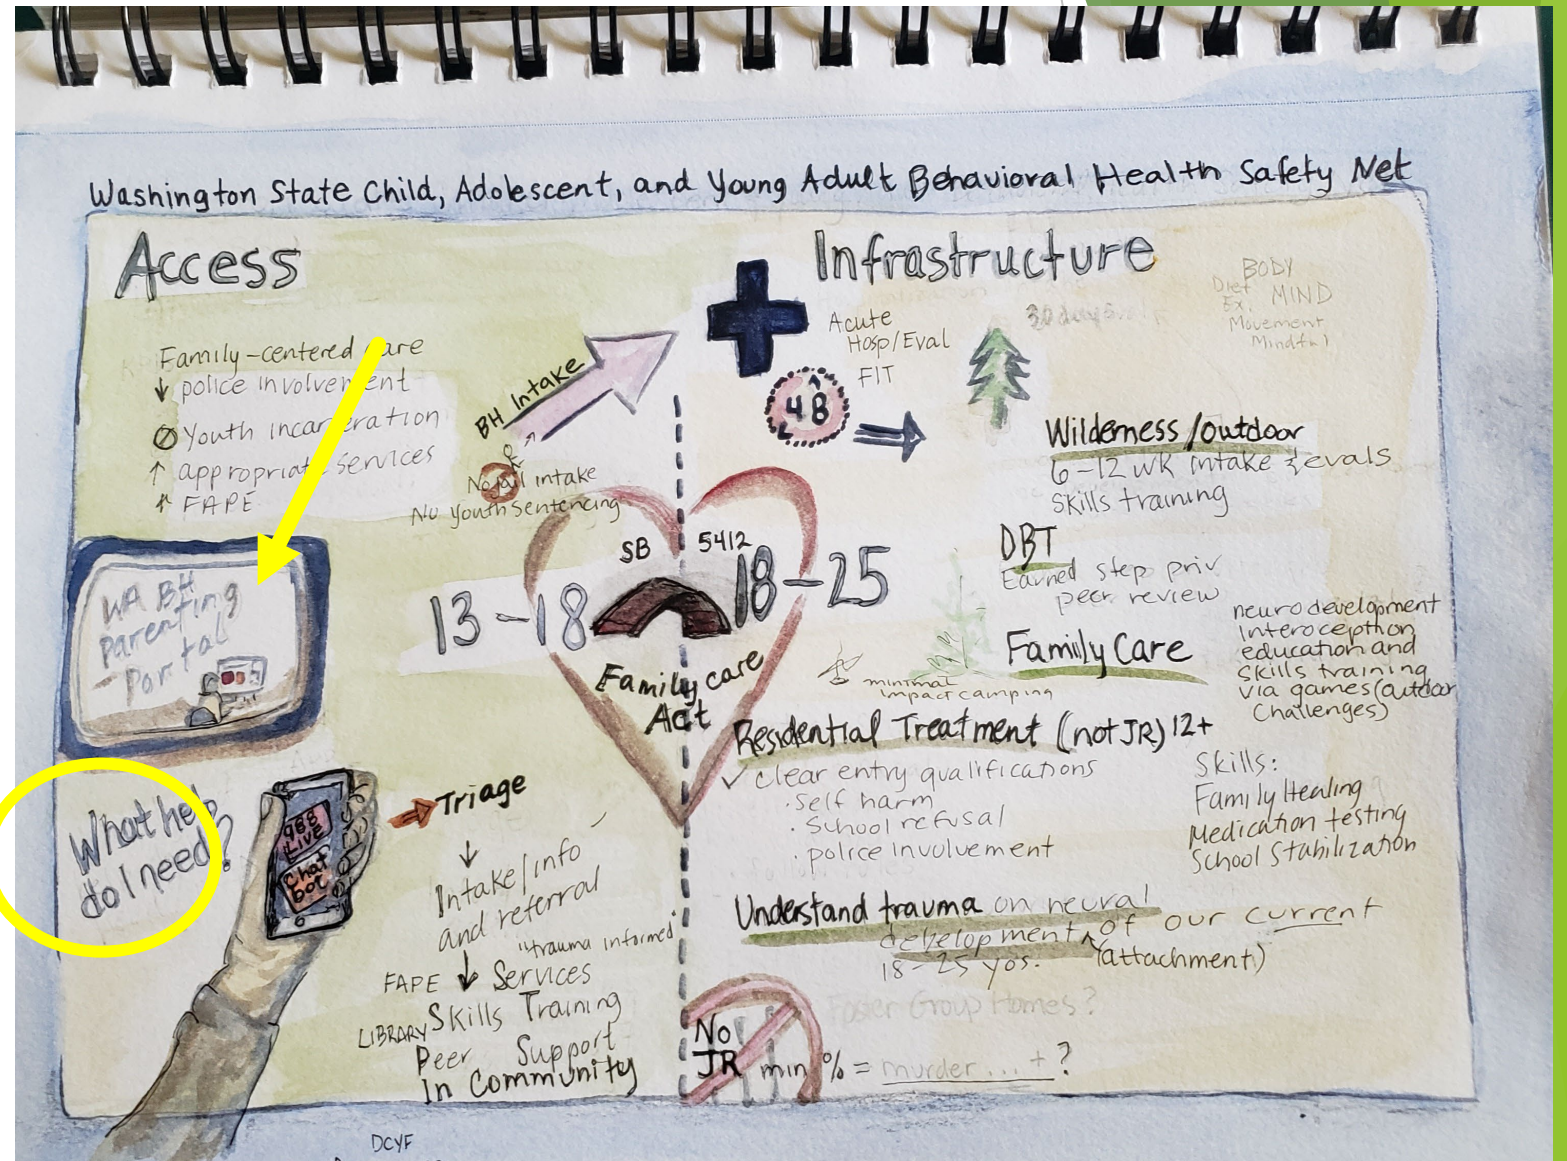 Washington State Child, Adolescent, and Young Adult Behavioral Health Safety Net
Access
Family-centered care
↓ police involvement
∅ Youth incarceration
↑ appropriate services
↑ FAPE
BH Intake
No jail intake
No Youth Sentencing
WA BH
Parenting
Portal
What help
do I need?
988
LIVE
Chat
bot
Triage
Intake/info
and referral
"trauma informed"
FAPE ↓ Services
LIBRARY Skills Training
Peer Support
In Community
SB 5412
13-18
18-25
Family care
Act
Infrastructure
Acute
Hosp/Eval
FIT
48
30 day
BODY
Diet MIND
Ex.
Movement
Mindful
Wilderness/outdoor
6-12 wk intake & evals
Skills training
DBT
Earned step priv
peer review
Family Care
minimal
impact camping
neurodevelopment
Interoception
education and
skills training
via games (outdoor
Challenges)
Residential Treatment (not JR) 12+
✓ clear entry qualifications
· self harm
· School refusal
· police Involvement
Skills:
Family Healing
Medication testing
School Stabilization
Understand trauma on neural
development of our current
18-25 yos. (attachment)
Foster Group Homes?
No
JR min % = murder... + ?
DCYF